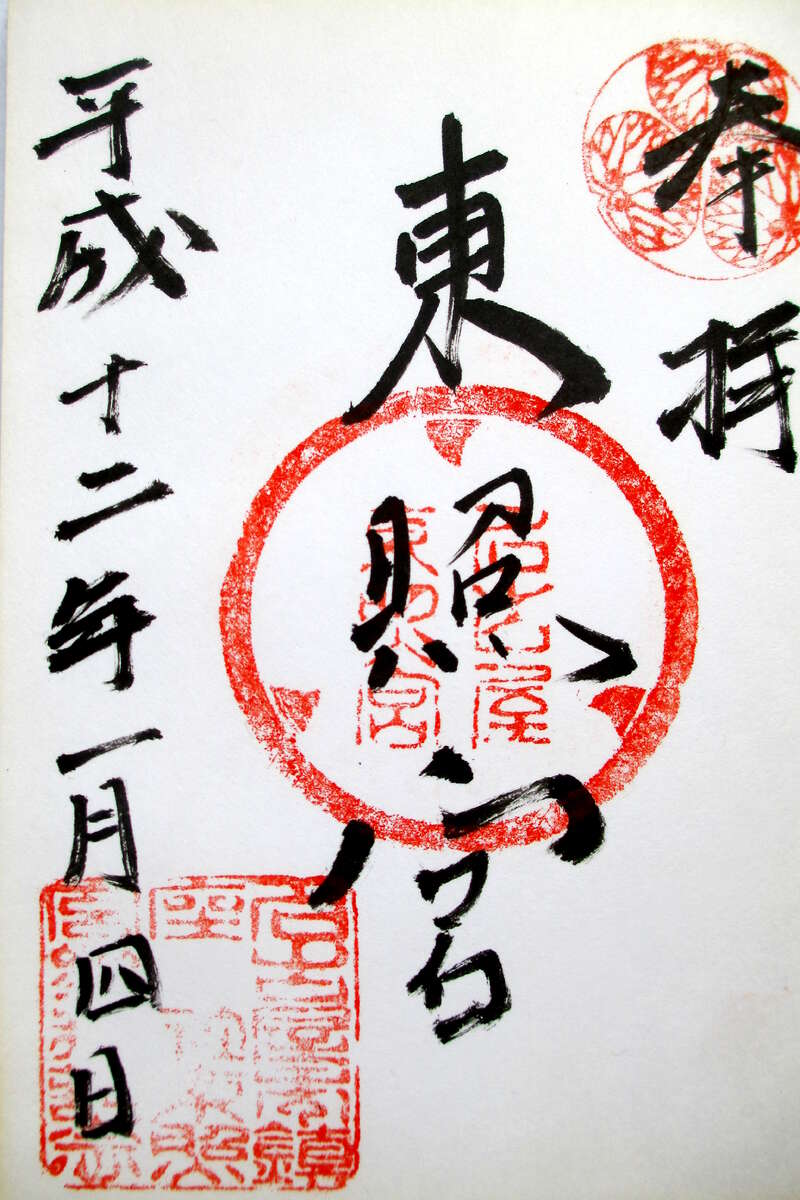 奉拝
東照宮
名古屋
東照宮
平成十二年一月四日